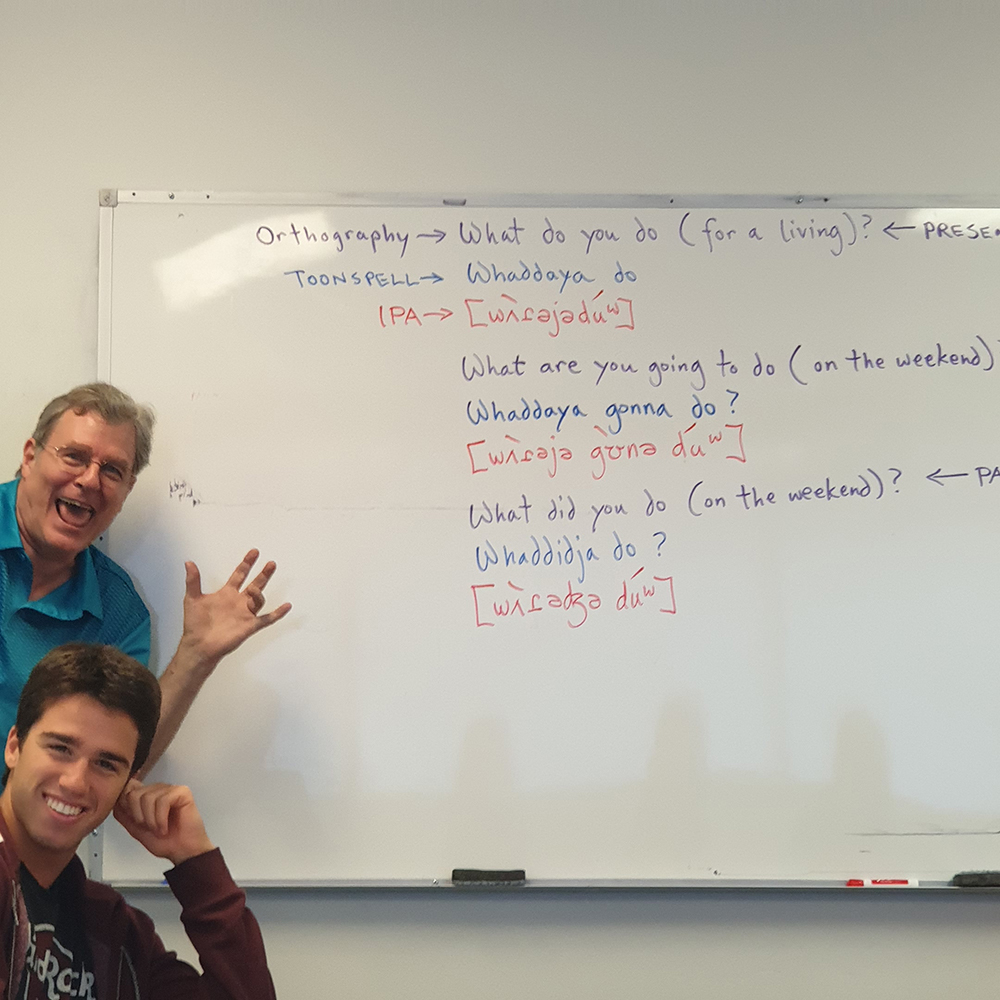 Orthography → What do you do (for a living)? ← PRESE
TOONSPELL → Whaddaya do
IPA → [wʌ̀ɾəjədúʷ]
What are you going to do (on the weekend)?
Whaddaya gonna do?
[wʌ̀ɾəjə gʊ̀nə dúʷ]
What did you do (on the weekend)? ← PA
Whaddidja do?
[wʌ̀ɾəʤə dúʷ]